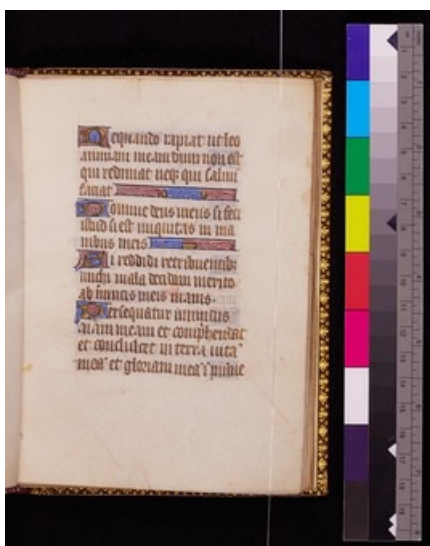 Nequando rapiat ut leo
animam meam dum non est
qui redimat neq; qui salvu
faciat
Domine deus meus si feci
istud si est iniquitas in ma
nibus meis
Si reddidi retribuentib;
michi mala decidam merito
ab inimicis meis inanis.
Persequatur inimicus
aiam meam et comprehendat
et conculcet in terra vita
mea et gloriam mea i pulve